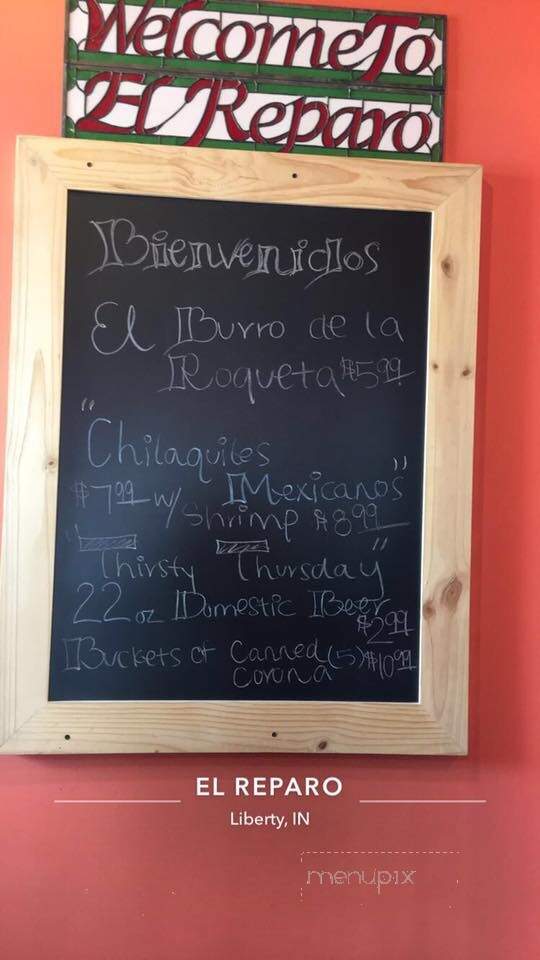 Welcome To
El Reparo
Bienvenidos
El Burro de la
Roqueta $5.99
"Chilaquiles
Mexicanos"
$7.99 w/ Shrimp $8.99
"Thirsty Thursday"
22 oz Domestic Beer
$2.99
Buckets of Canned (5) $10.99
Corona
EL REPARO
Liberty, IN
menupix